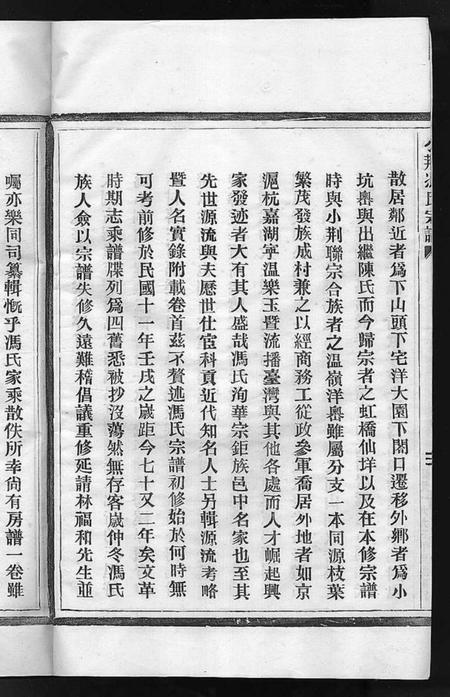 散居鄰近者爲下山頭下宅洋大園下閣口遷移外鄉者爲小
坑嶴與出繼陳氏而今歸宗者之虹橋仙垟以及在本修宗譜
時與小荆聯宗合族者之温嶺洋嶴雖屬分支一本同源枝葉
繁茂發族成村兼之以經商務工從政參軍喬居外地者如京
滬杭嘉湖寧温樂玉暨流播臺灣與其他各處而人才崛起興
家發迹者大有其人盛哉馮氏洵華宗鉅族邑中名家也至其
先世源流與夫歷世仕宦科貢近代知名人士另輯源流考略
暨人名實錄附載卷首茲不贅述馮氏宗譜初修始於何時無
可考前修於民國十一年壬戌之歲距今七十又二年矣文革
時期志乘譜牒列爲四舊悉被抄沒蕩然無存客歲仲冬馮氏
族人僉以宗譜失修久遠難稽倡議重修延請林福和先生並
囑亦樂同司纂輯慨乎馮氏家乘散佚所幸尙有房譜一卷雖